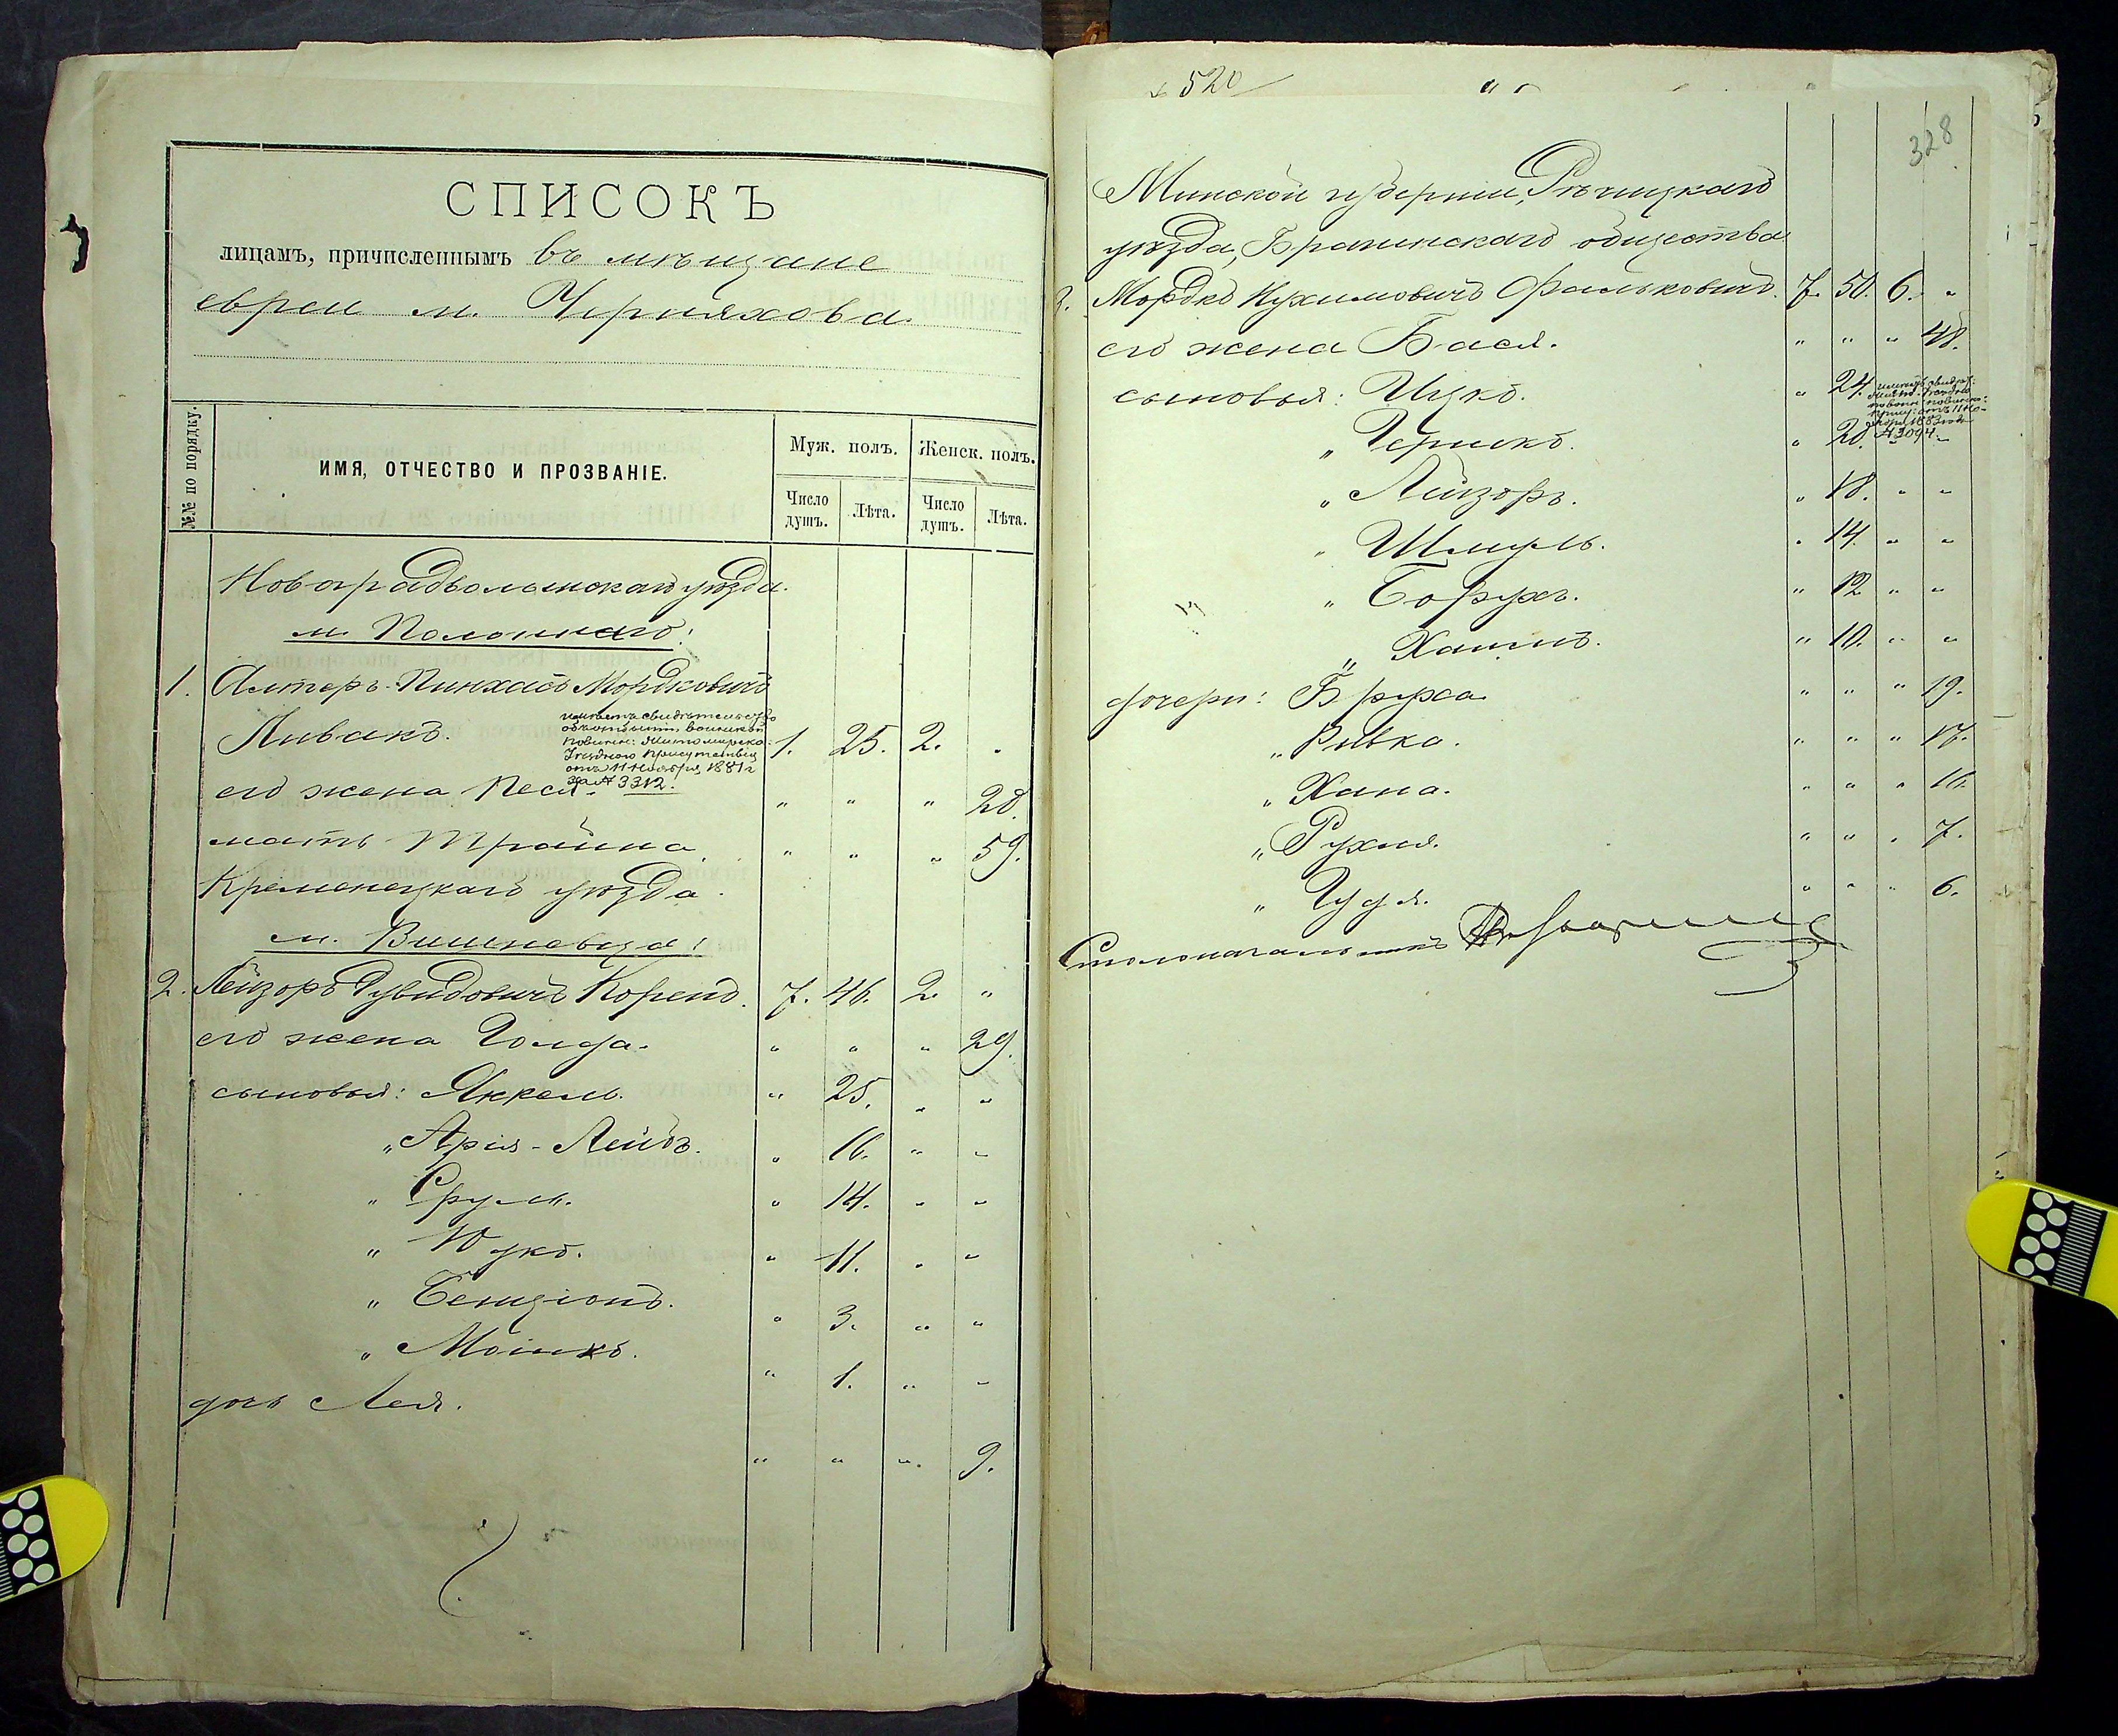 СПИСОКЪ
лицамъ, причисленнымъ въ мѣщане
евреи м. Черняхова.
№№ по порядку.
ИМЯ, ОТЧЕСТВО И ПРОЗВАНІЕ.
Муж. полъ. Женск. полъ.
Число душъ. Лѣта. Число душъ. Лѣта.
Новоградволынскаго уѣзда.
м. Полоннаго:
1. Алтеръ-Пинхасъ Мордковичъ
Ливакъ. 1. 25. 2. "
имѣетъ свидѣтельство
объ отбыт. воинской
повинн: Житомирска:
Уѣзднаго присутствія
отъ 11 Ноября 1881 г
за № 3312.
его жена Песя. " " " 20.
мать Трайна. " " " 59.
Кременецкаго уѣзда.
м. Вишневца:
2. Лейзоръ Дувидовичъ Корень. 7. 46. 2. "
его жена Голда. " " " 29.
сыновья: Янкель. " 25. " "
" Арія-Лейбъ. " 16. " "
" Сруль. " 14. " "
" Ицко. " 11. " "
" Бенціонъ. " 3. " "
" Мошко. " 1. " "
дочь Лея. " " " 9.
520
328
Минской губерніи, Рѣчицкаго
уѣзда, Брагинскаго общества
3. Мордко Нухимовичъ Фальковичъ. 7. 50. 6. "
его жена Бася. " " " 48.
сыновья: Ицко. " 24.
" Бериско. " 20. " "
№ 3094.
" Лейзоръ. " 18. " "
" Шмуль. " 14. " "
" Борухъ. " 12 " "
" Хаимъ. " 10. " "
дочери: Бруха " " " 19.
" Ривка. " " " 17.
" Хана. " " " 16.
" Рухля. " " " 7.
" Гудя. " " " 6.
Столоначальникъ